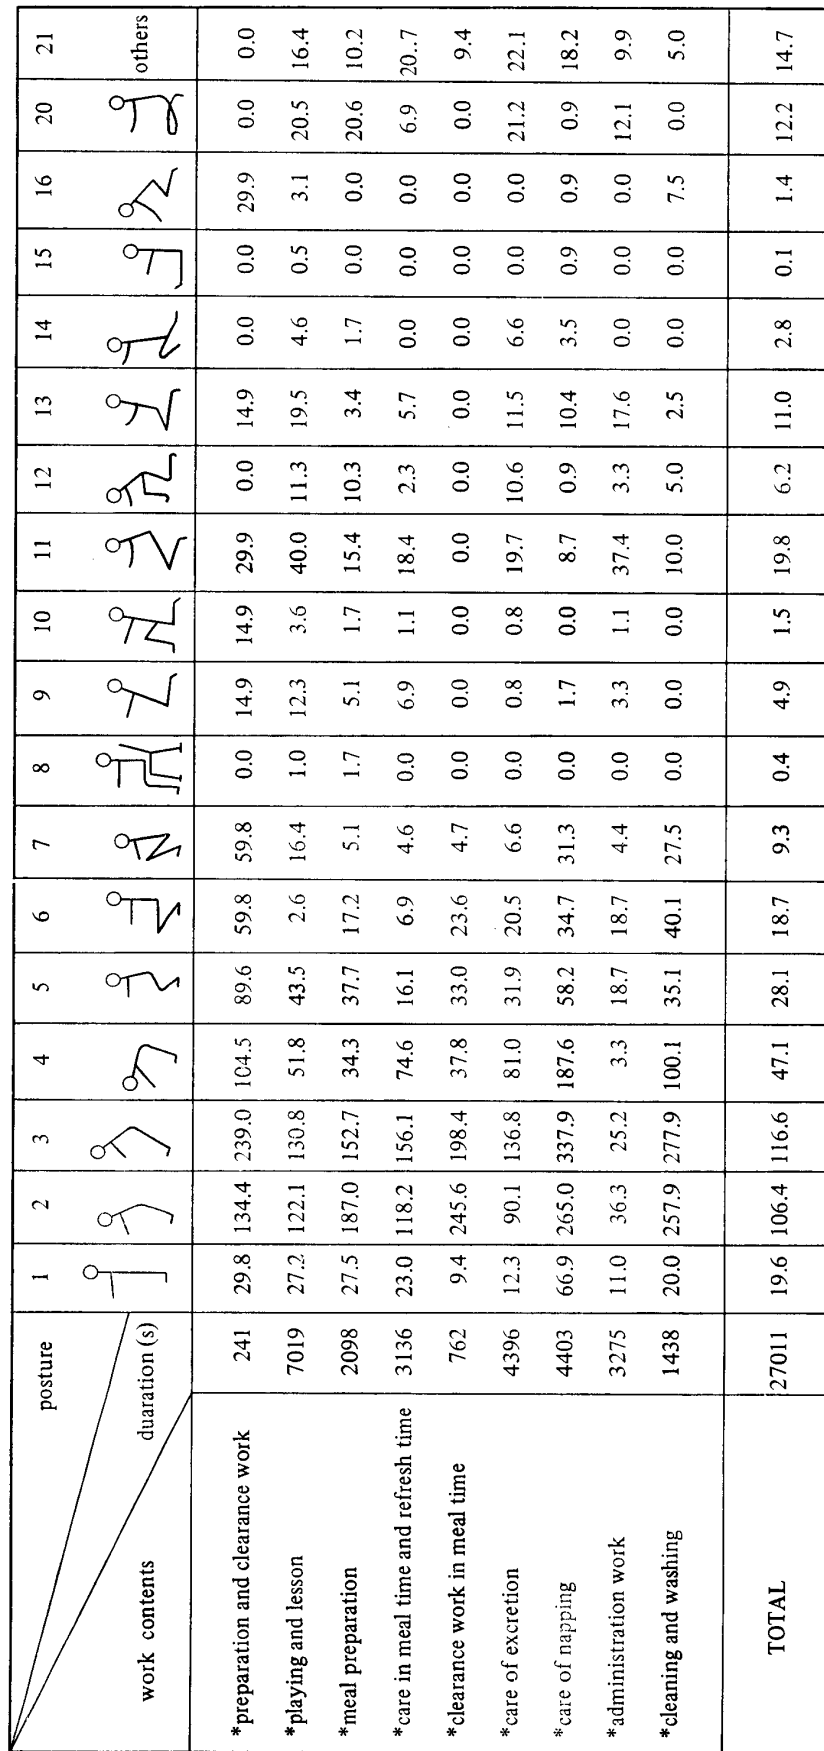 posture 1 2 3 4 5 6 7 8 9 10 11 12 13 14 15 16 20 21
work contents duaration (s) others
*preparation and clearance work 241 29.8 134.4 239.0 104.5 89.6 59.8 59.8 0.0 14.9 14.9 29.9 0.0 14.9 0.0 0.0 29.9 0.0 0.0
*playing and lesson 7019 27.2 122.1 130.8 51.8 43.5 2.6 16.4 1.0 12.3 3.6 40.0 11.3 19.5 4.6 0.5 3.1 20.5 16.4
*meal preparation 2098 27.5 187.0 152.7 34.3 37.7 17.2 5.1 1.7 5.1 1.7 15.4 10.3 3.4 1.7 0.0 0.0 20.6 10.2
*care in meal time and refresh time 3136 23.0 118.2 156.1 74.6 16.1 6.9 4.6 0.0 6.9 1.1 18.4 2.3 5.7 0.0 0.0 0.0 6.9 20..7
*clearance work in meal time 762 9.4 245.6 198.4 37.8 33.0 23.6 4.7 0.0 0.0 0.0 0.0 0.0 0.0 0.0 0.0 0.0 0.0 9.4
*care of excretion 4396 12.3 90.1 136.8 81.0 31.9 20.5 6.6 0.0 0.8 0.8 19.7 10.6 11.5 6.6 0.0 0.0 21.2 22.1
*care of napping 4403 66.9 265.0 337.9 187.6 58.2 34.7 31.3 0.0 1.7 0.0 8.7 0.9 10.4 3.5 0.9 0.9 0.9 18.2
*administration work 3275 11.0 36.3 25.2 3.3 18.7 18.7 4.4 0.0 3.3 1.1 37.4 3.3 17.6 0.0 0.0 0.0 12.1 9.9
*cleaning and washing 1438 20.0 257.9 277.9 100.1 35.1 40.1 27.5 0.0 0.0 0.0 10.0 5.0 2.5 0.0 0.0 7.5 0.0 5.0
TOTAL 27011 19.6 106.4 116.6 47.1 28.1 18.7 9.3 0.4 4.9 1.5 19.8 6.2 11.0 2.8 0.1 1.4 12.2 14.7